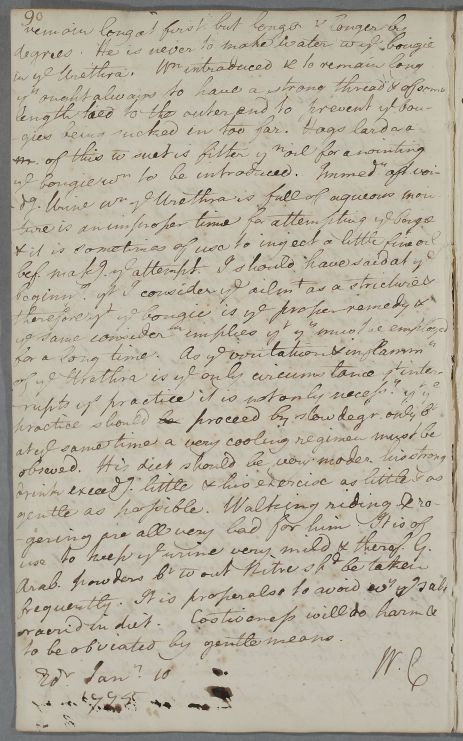 90
remain long at first but longer & longer by
degrees. He is never to make water wt ye bougie
in ye Urethra. Wn introduced & to remain long
yy ought always to have a strong thread of some
length tied to the outer end to prevent ye bou-
gies being sucked in too far. Hogs lard or a
of this wt suet is fitter yn oil for anointing
ye bougie wn to be introduced. Immedy aft voi-
dg Urine wn ye Urethra is full of aqueous mois-
ture is an improper time for attempting ye bougie
& it is sometimes of use to inject a little fine oil
bef. makg ye attempt. I should have said at ye
beginng yt I consider ye ailmt as a stricture &
therefore yt ye bougie is ye proper remedy &
ye same considern implies yt yy must be employed
for a long time. As ye irritation & inflammn
of ye Urethra is ye only circumstance yt inter-
rupts ys practice it is not only necessy yt ye
practice should proceed by slow degr. only &
at ye same time a very cooling regimen must be
observed. His diet should be very moder. his strong
drink exceedg little & his exercise as little & as
gentle as possible. Walking riding &
are all very bad for him. It is of
use to keep ye urine very mild & theref. G.
Arab. powders bt wtout Nitre shd be taken
frequently. It is proper also to avoid ye salt
or acrid in diet. Costiveness will do harm &
to be obviated by gentle means.
W. C
Edr Jany 10